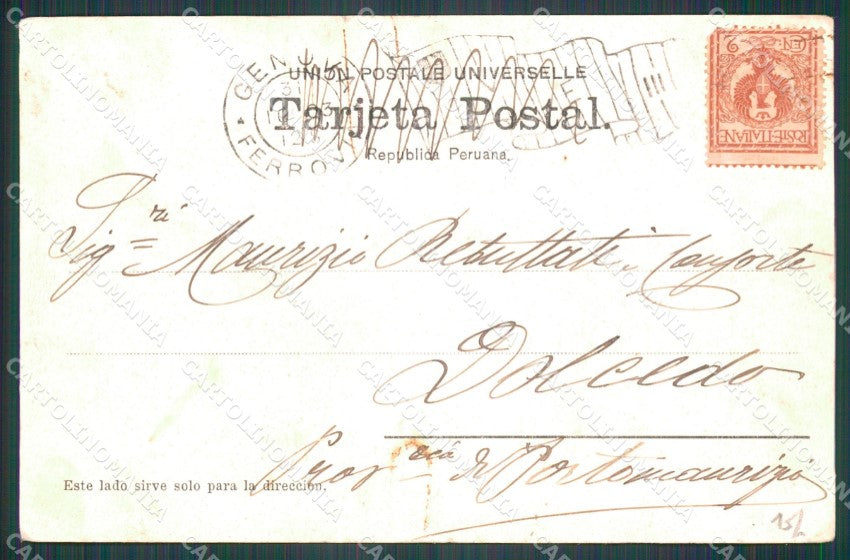 GENOVA
FERROVIA
UNION POSTALE UNIVERSELLE
Tarjeta Postal.
Republica Peruana.
POSTE ITALIANE
CEN 2
Sig.ri Maurizio e Consorte
Dolcedo
Prov.cia di Portomaurizio
Este lado sirve solo para la dirección.
15/-
CARTOLINOMANIA